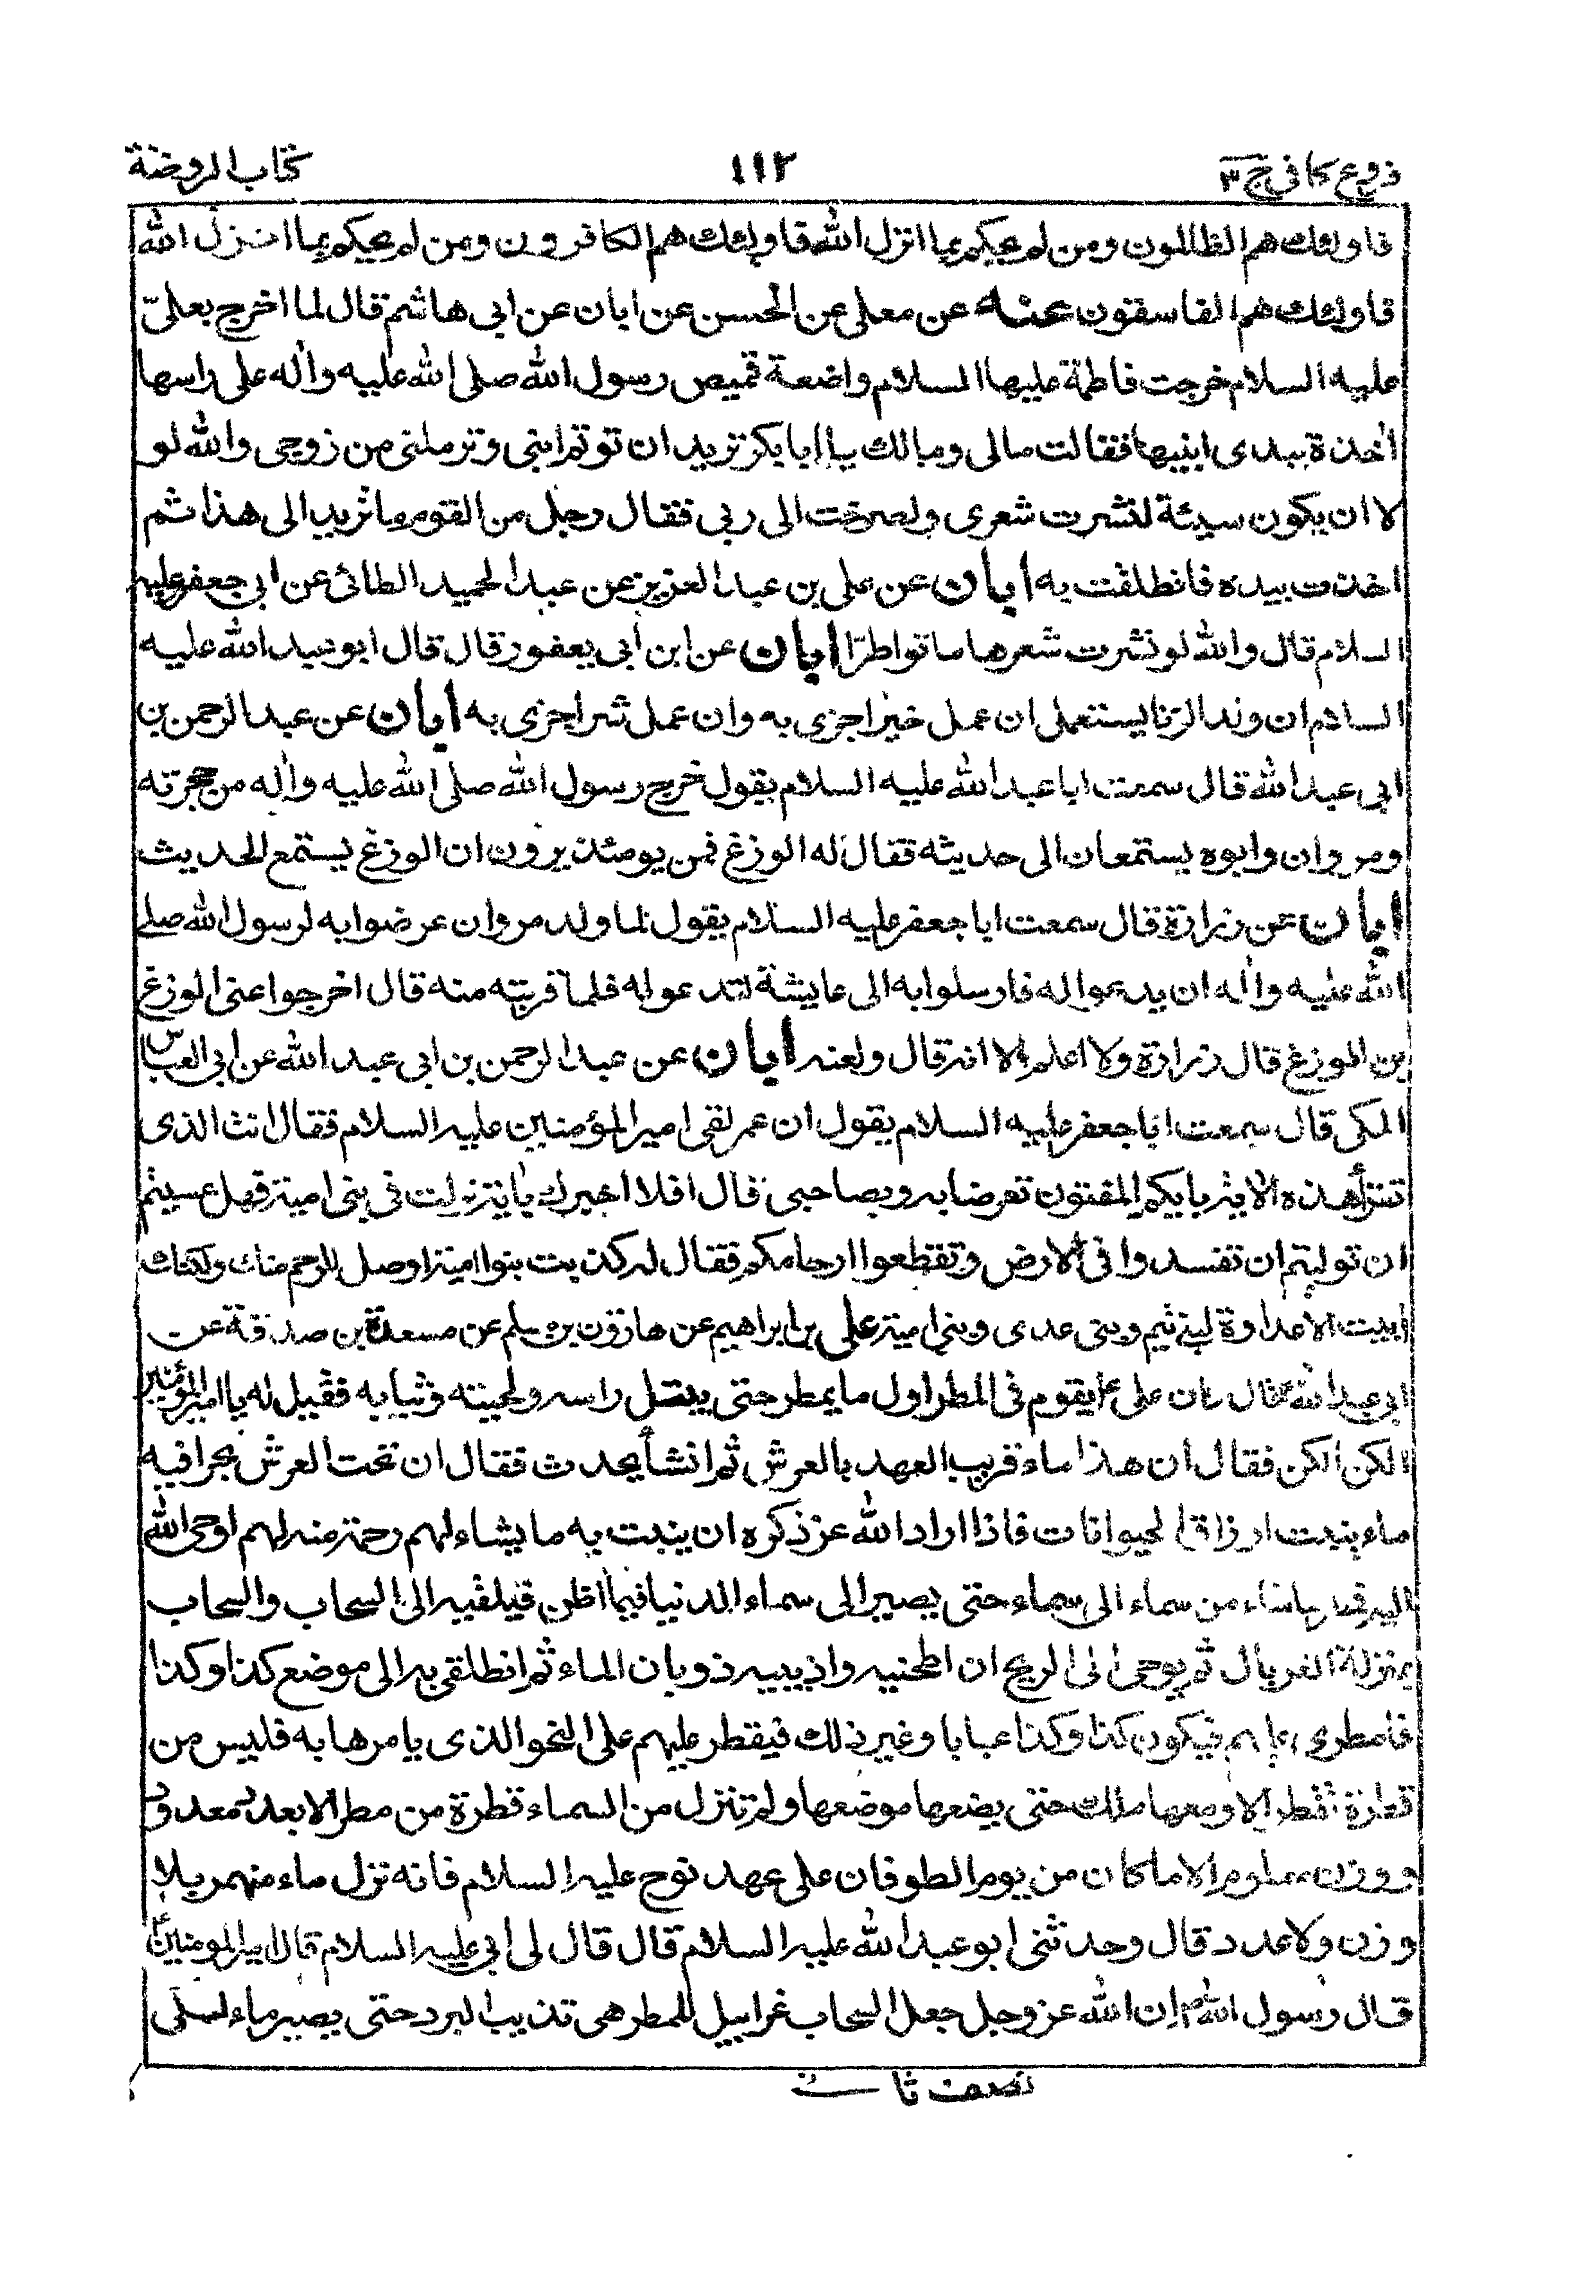 فروع کافی ج ۳ ۱۱۲ کتاب الروضة
فاولئك هم الظالمون ومن لم يحكم بما انزل الله فاولئك هم الكافرون ومن لم يحكم بما انزل الله
فاولئك هم الفاسقون عنه عن معلى عن الحسن عن ابان عن ابى هاشم قال لما اخرج بعلىّ
عليه السلام خرجت فاطمة عليها السلام واضعة قميص رسول الله صلى الله عليه واٰله على راسها
اٰخذة بيدى ابنيها فقالت مالى ومالك يا ابابكر تريد ان توتم ابنى وترملنى من زوجى والله لو
لا ان يكون سيئة لنشرت شعرى ولصرخت الى ربى فقال رجل من القوم ما تريد الى هذا ثم
اخذت بيده فانطلقت به ابان عن على بن عبد العزيز عن عبد الحميد الطائى عن ابى جعفر عليه
السلام قال والله لو نشرت شعرها ماتوا طرّا ابان عن ابن ابى يعفور قال قال ابو عبد الله عليه
السلام ان ولد الزنا يستعمل ان عمل خيرا جزى به وان عمل شرا جزى به ابان عن عبد الرحمن بن
ابى عبد الله قال سمعت ابا عبد الله عليه السلام يقول خرج رسول الله صلى الله عليه واٰله من حجرته
ومروان وابوه يستمعان الى حديثه فقال له الوزغ فمن يومئذ يرون ان الوزغ يستمع الحديث
ابان عن زرارة قال سمعت ابا جعفر عليه السلام يقول لما ولد مروان عرضوا به لرسول الله صلى
الله عليه واٰله ان يدعوا له فارسلوا به الى عايشة لتدعوا له فلما قربته منه قال اخرجوا عنى الوزغ
بن الوزغ قال زرارة ولا اعلم الا انه قال ولعنه ابان عن عبد الرحمن بن ابى عبد الله عن ابى العباس
المكى قال سمعت ابا جعفر عليه السلام يقول ان عمر لقى امير المؤمنين عليه السلام فقال انت الذى
تقرأ هذه الاية بايكم المفتون تعرضا بى وبصاحبى قال افلا اخبرك باية نزلت فى بنى امية فهل عسيتم
ان توليتم ان تفسدوا فى الارض وتقطعوا ارحامكم فقال له كذبت بنوا امية اوصل للرحم منك ولكنك
ابيت الا عداوة لبنى تيم وبنى عدى وبنى امية على بن ابراهيم عن هارون بن مسلم عن مسعدة بن صدقة عن
ابى عبد الله ع قال كان على ع يقوم فى المطر اول ما يمطر حتى يبتل راسه ولحيته وثيابه فقيل له يا امير المؤمنين
الكن الكن فقال ان هذا ماء قريب العهد بالعرش ثم انشأ يحدث فقال ان تحت العرش بحرا فيه
ماء ينبت ارزاق الحيوانات فاذا اراد الله عز ذكره ان ينبت به ما يشاء لهم رحمة منه لهم اوحى الله
اليه فمطر ما شاء من سماء الى سماء حتى يصير الى سماء الدنيا فيما اظن فيلقيه الى السحاب والسحاب
بمنزلة الغربال ثم يوحى الى الريح ان اطحنيه واذيبيه ذوبان الماء ثم انطلقى به الى موضع كذا وكذا
فامطرى عليهم فيكون كذا وكذا عبابا وغير ذلك فيقطر عليهم على النحو الذى يامرها به فليس من
قطرة تقطر الا ومعها ملك حتى يضعها موضعها ولم تنزل من السماء قطرة من مطر الا بعدد معدود
ووزن معلوم الا ما كان من يوم الطوفان على عهد نوح عليه السلام فانه نزل ماء منهمر بلا
وزن ولا عدد قال وحدثنى ابو عبد الله عليه السلام قال قال لى ابى عليه السلام قال امير المومنين ع
قال رسول الله ص ان الله عز وجل جعل السحاب غرابيل للمطر هى تذيب البرد حتى يصير ماء لصلى